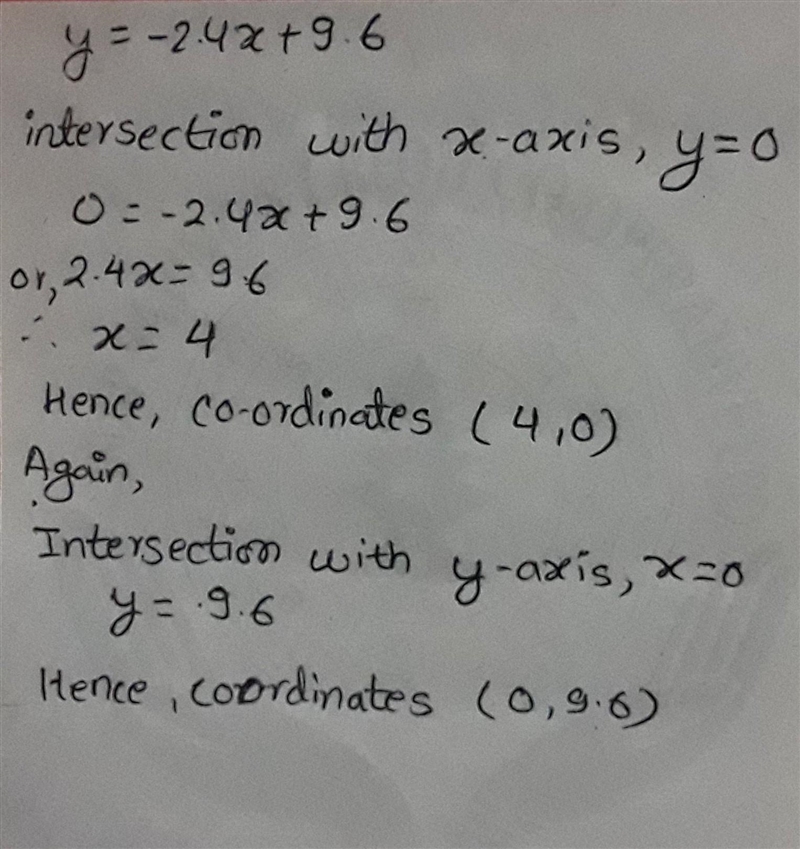 y = -2.4x + 9.6
intersection with x-axis, y=0
0 = -2.4x + 9.6
or, 2.4x = 9.6
∴ x = 4
Hence, co-ordinates (4,0)
Again,
Intersection with y-axis, x=0
y = 9.6
Hence, coordinates (0, 9.6)